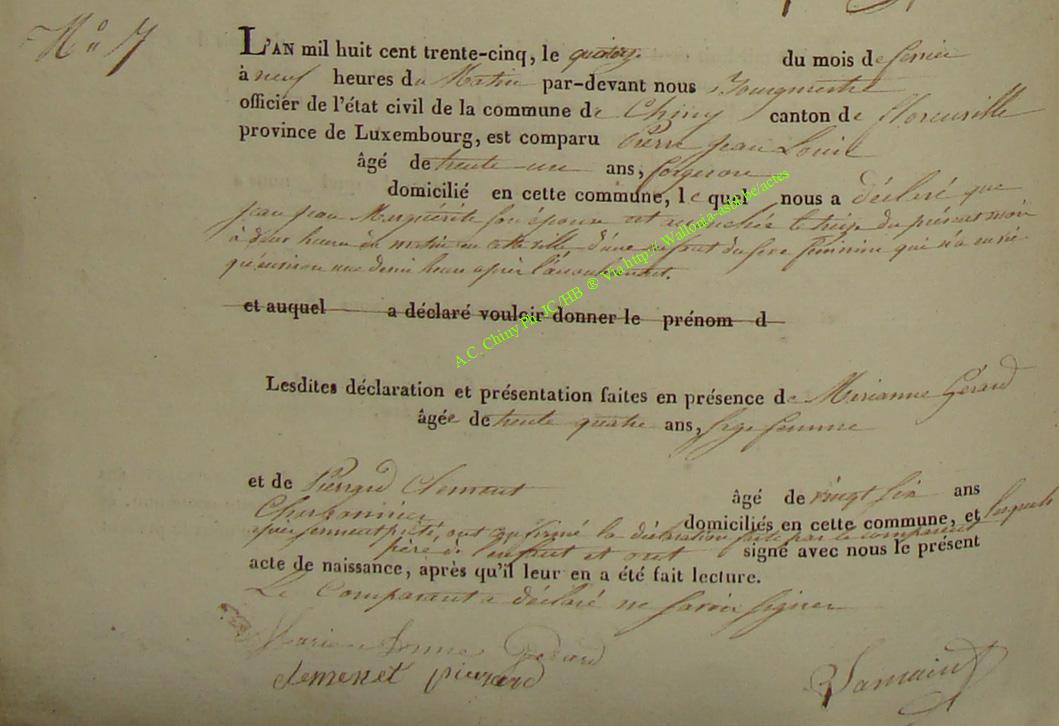 N° 7
L'AN mil huit cent trente-cinq, le quatorze du mois de fevrier
à neuf heures du Matin par-devant nous Bourgmestre
officier de l'état civil de la commune de Chiny canton de florenville
province de Luxembourg, est comparu Pierre Jean Louis
âgé de trente-un ans, forgeron
domicilié en cette commune, lequel nous a déclaré que
Jean Jean Marguérite son épouse est accouchée le treize du présent mois
à deux heures du matin en cette ville d'une enfant du sexe féminin qui n'a survie
qu'environ une demi heure après l'accouchement.
et auquel a déclaré vouloir donner le prénom d
Lesdites déclaration et présentation faites en présence de Mirianne Gérard
âgée de trente quatre ans, sage femme
et de Pierrard Clement âgé de vingt six ans
Charbonnier domiciliés en cette commune, et lesquels
après serment prêté, ont confirmé la déclaration faite par le comparant
père de l'enfant et ont signé avec nous le présent
acte de naissance, après qu'il leur en a été fait lecture.
Le Comparant a déclaré ne savoir signer
Marie Anne Gerard
clement pierrard
A.C. Chiny Ph JC/HB ® Via http:// Wallonia-asbl.be/actes